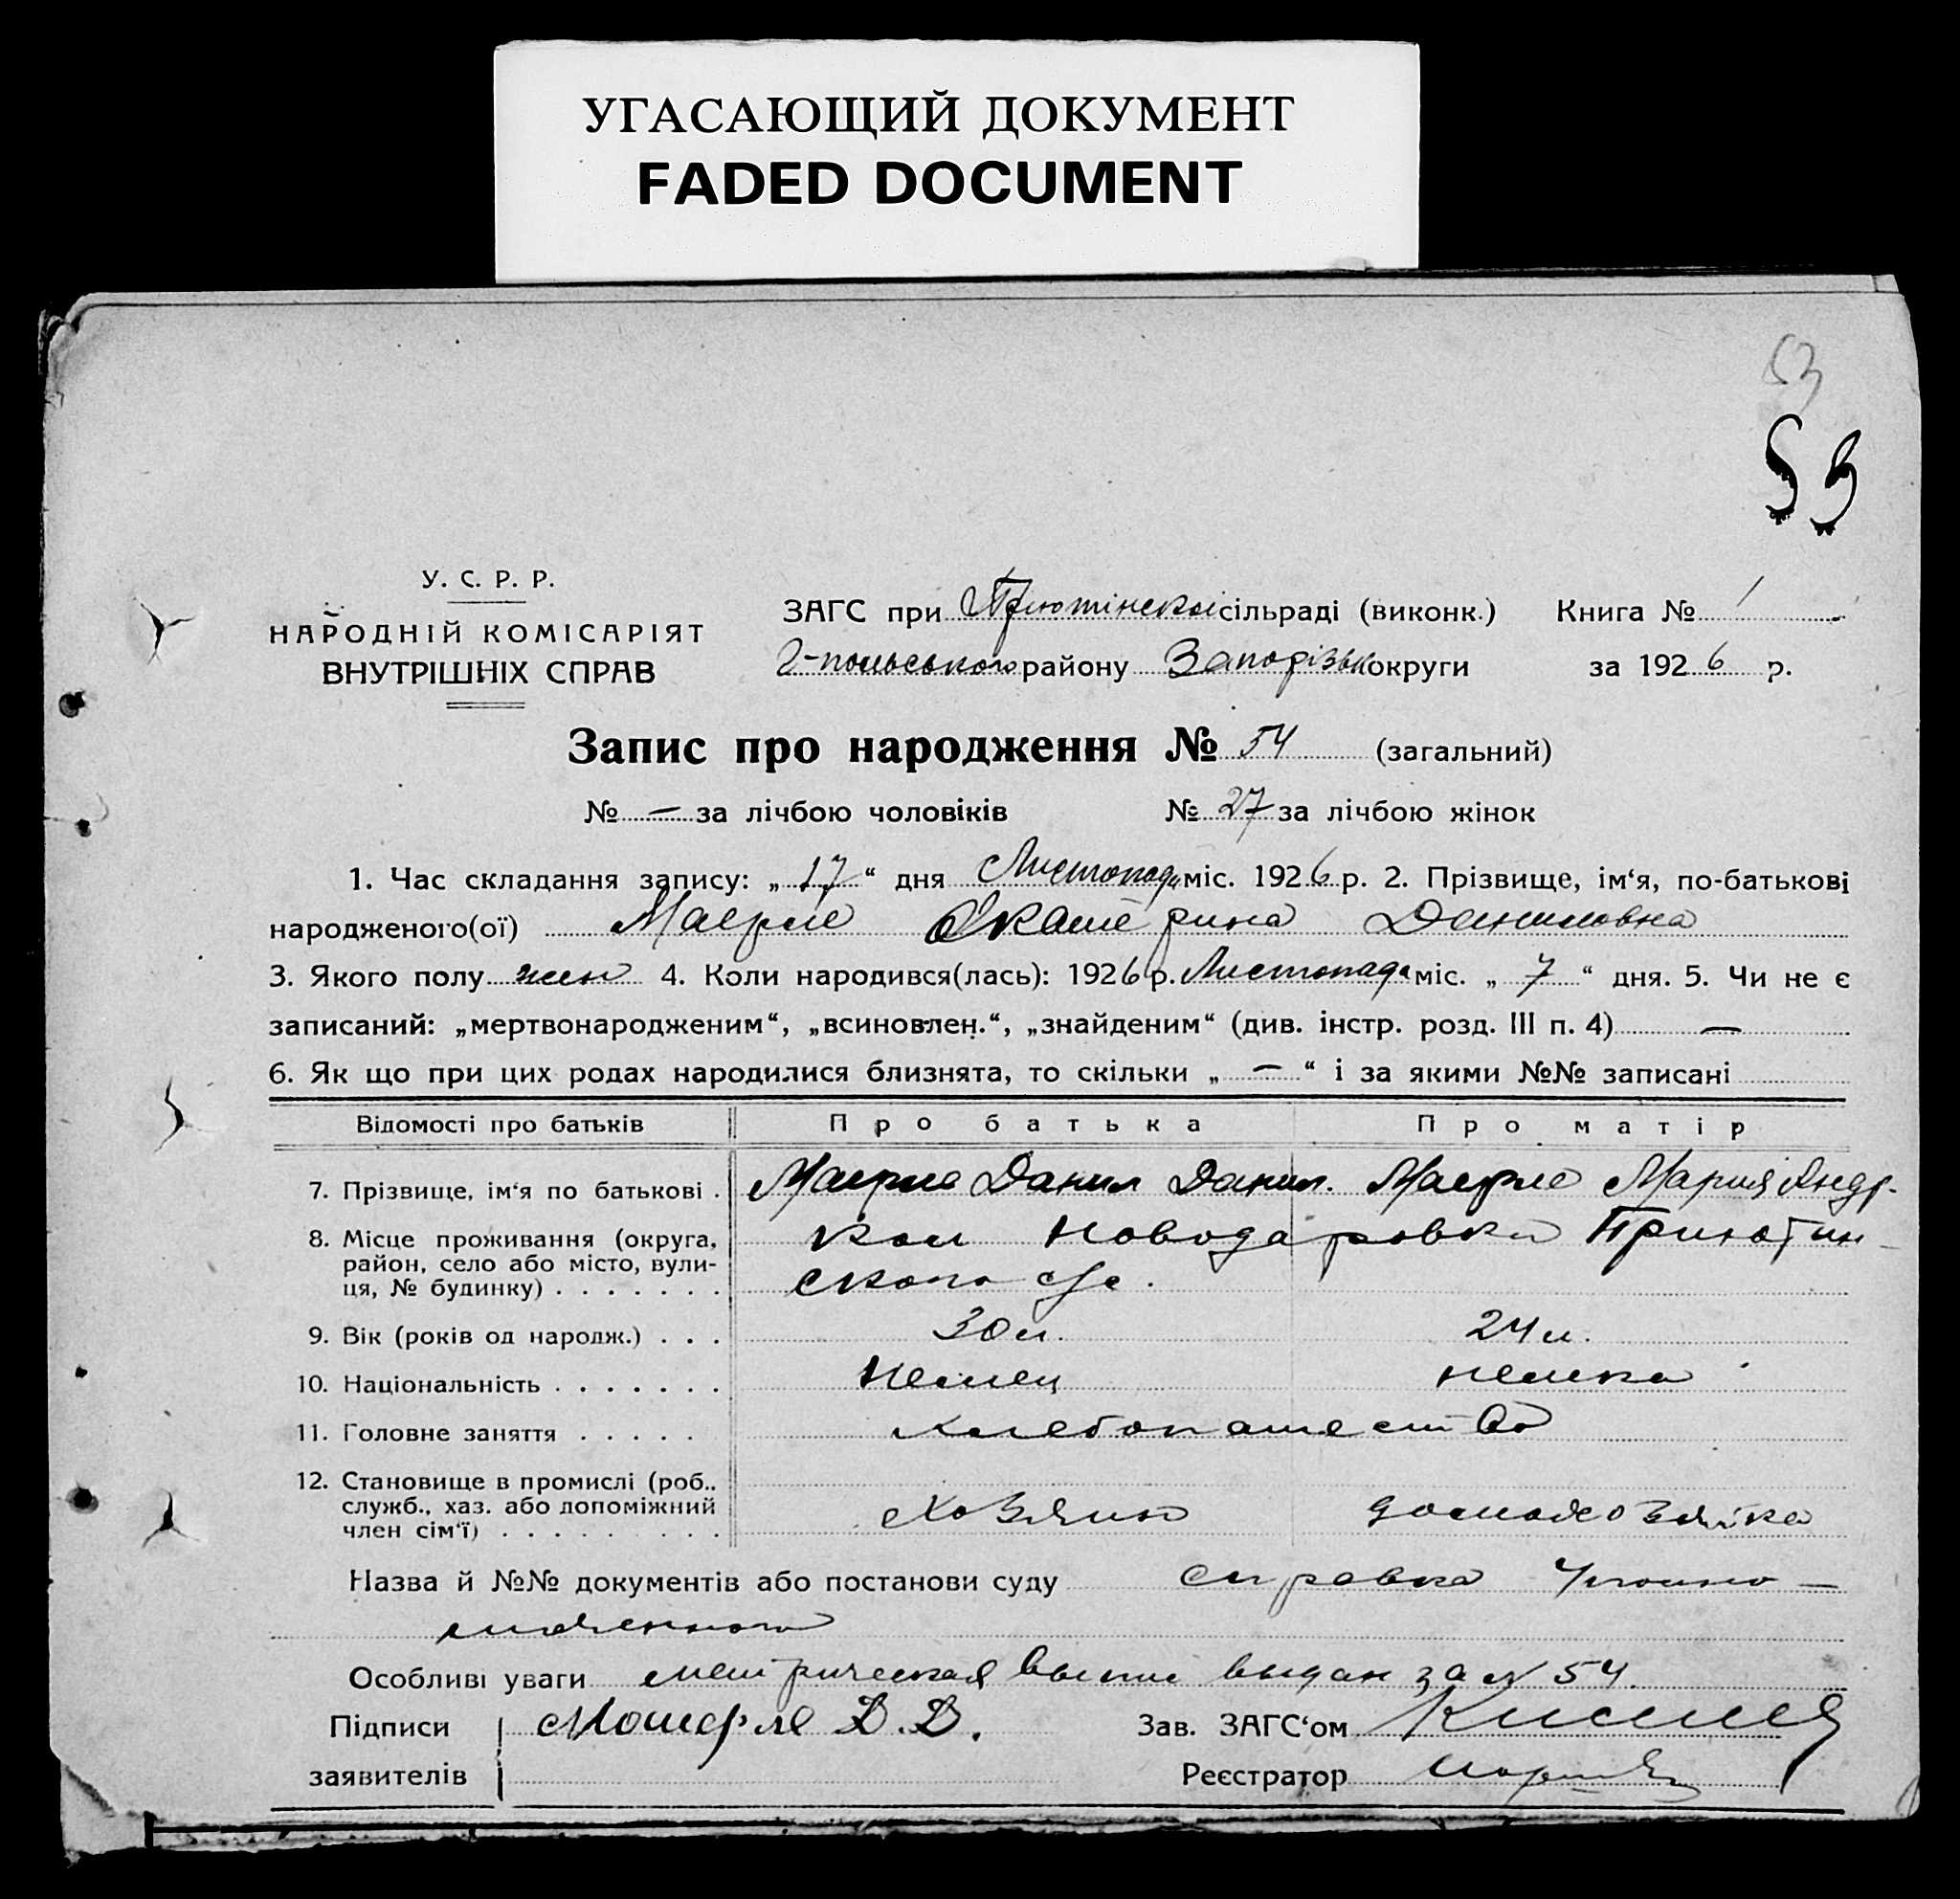 УГАСАЮЩИЙ ДОКУМЕНТ
FADED DOCUMENT
53
53
У. С. Р. Р.
НАРОДНІЙ КОМІСАРІЯТ
ВНУТРІШНІХ СПРАВ
ЗАГС при сільраді (виконк.) Книга № 1
району Запорізьк округи за 1926 р.
Запис про народження № 54 (загальний)
№ — за лічбою чоловіків № 27 за лічбою жінок
1. Час складання запису: „ 17 “ дня Листопада міс. 1926 р. 2. Прізвище, ім‘я, по-батькові
народженого(ої) Маерле Екатерина Даниловна
3. Якого полу жен 4. Коли народився(лась): 1926 р. Листопада міс. „ 7 “ дня. 5. Чи не є
записаний: „мертвонародженим“, „всиновлен.“, „знайденим“ (див. інстр. розд. III п. 4) —
6. Як що при цих родах народилися близнята, то скільки „ — “ і за якими №№ записані
Відомості про батьків Про батька Про матір
7. Прізвище, ім‘я по батькові . Маерле Данил Данил. Маерле Мария Андр.
8. Місце проживання (округа, район, село або місто, вули-ця, № будинку) . . . . . . . Кол Новодаровка Приютин-
ского с/с.
9. Вік (років од народж.) . . . 30 л. 24 л.
10. Національність . . . . . . . Немец немка
11. Головне заняття . . . . . хлебопашество
12. Становище в промислі (роб.. служб., хаз. або допоміжний член сім‘ї) . . . . . . . . . Хозяин домохозяйка
Назва й №№ документів або постанови суду справка Уполно-
моченного
Особливі уваги метрическая выпис выдан за № 54.
Підписи Д. Д. Зав. ЗАГС‘ом
заявителів Реєстратор